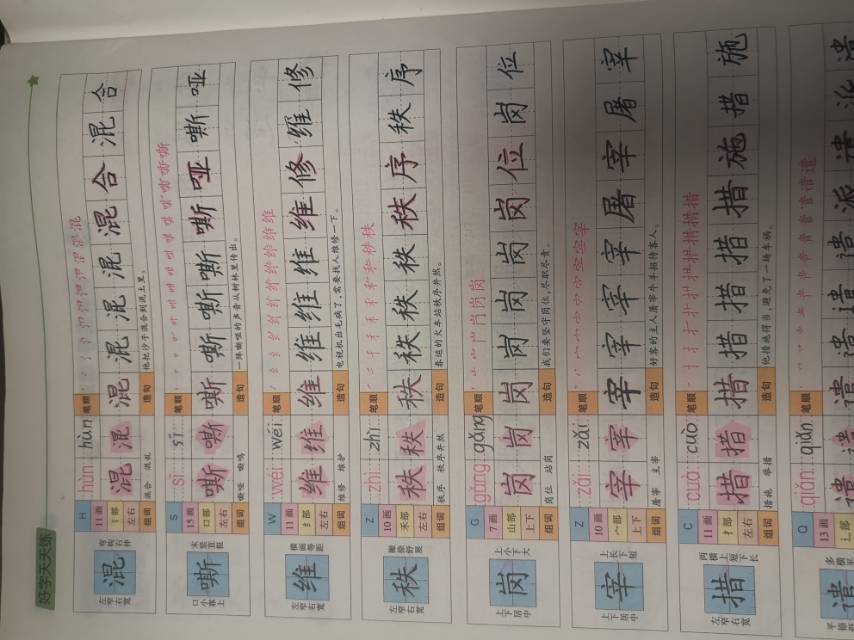 好字天天练
H hùn hùn 笔顺
混 左窄右宽 11画 氵部 左右 混 混 混 混 混 混 混 合 混 合
组词 混合 混乱 造句 他把沙子混合到泥土里。
S sī sī 笔顺
嘶 口小靠上 15画 口部 左右 嘶 嘶 嘶 嘶 嘶 嘶 嘶 哑 嘶 哑
组词 嘶哑 嘶鸣 造句 一阵嘶哑的声音从树林里传出。
W wéi wéi 笔顺
维 左窄右宽 11画 纟部 左右 维 维 维 维 维 维 维 修 维 修
组词 维修 维护 造句 电视机出毛病了，需要找人维修一下。
Z zhì zhì 笔顺
秩 左窄右宽 10画 禾部 左右 秩 秩 秩 秩 秩 秩 秩 序 秩 序
组词 秩序 秩序井然 造句 春运的火车站秩序井然。
G gǎng gǎng 笔顺
岗 上小下大 7画 山部 上下 岗 岗 岗 岗 岗 岗 岗 位 岗 位
组词 岗位 站岗 造句 我们要坚守岗位，尽职尽责。
Z zǎi zǎi 笔顺
宰 上下居中 10画 宀部 上下 宰 宰 宰 宰 宰 宰 屠 宰 屠 宰
组词 屠宰 主宰 造句 好客的主人屠宰牛羊招待客人。
C cuò cuò 笔顺
措 左窄右宽 11画 扌部 左右 措 措 措 措 措 措 措 施 措 施
组词 措施 举措 造句 他措施得当，避免了一场车祸。
Q qiǎn qiǎn 笔顺
遣 13画 辶部 遣 遣 遣 遣 遣 派 遣 派 遣